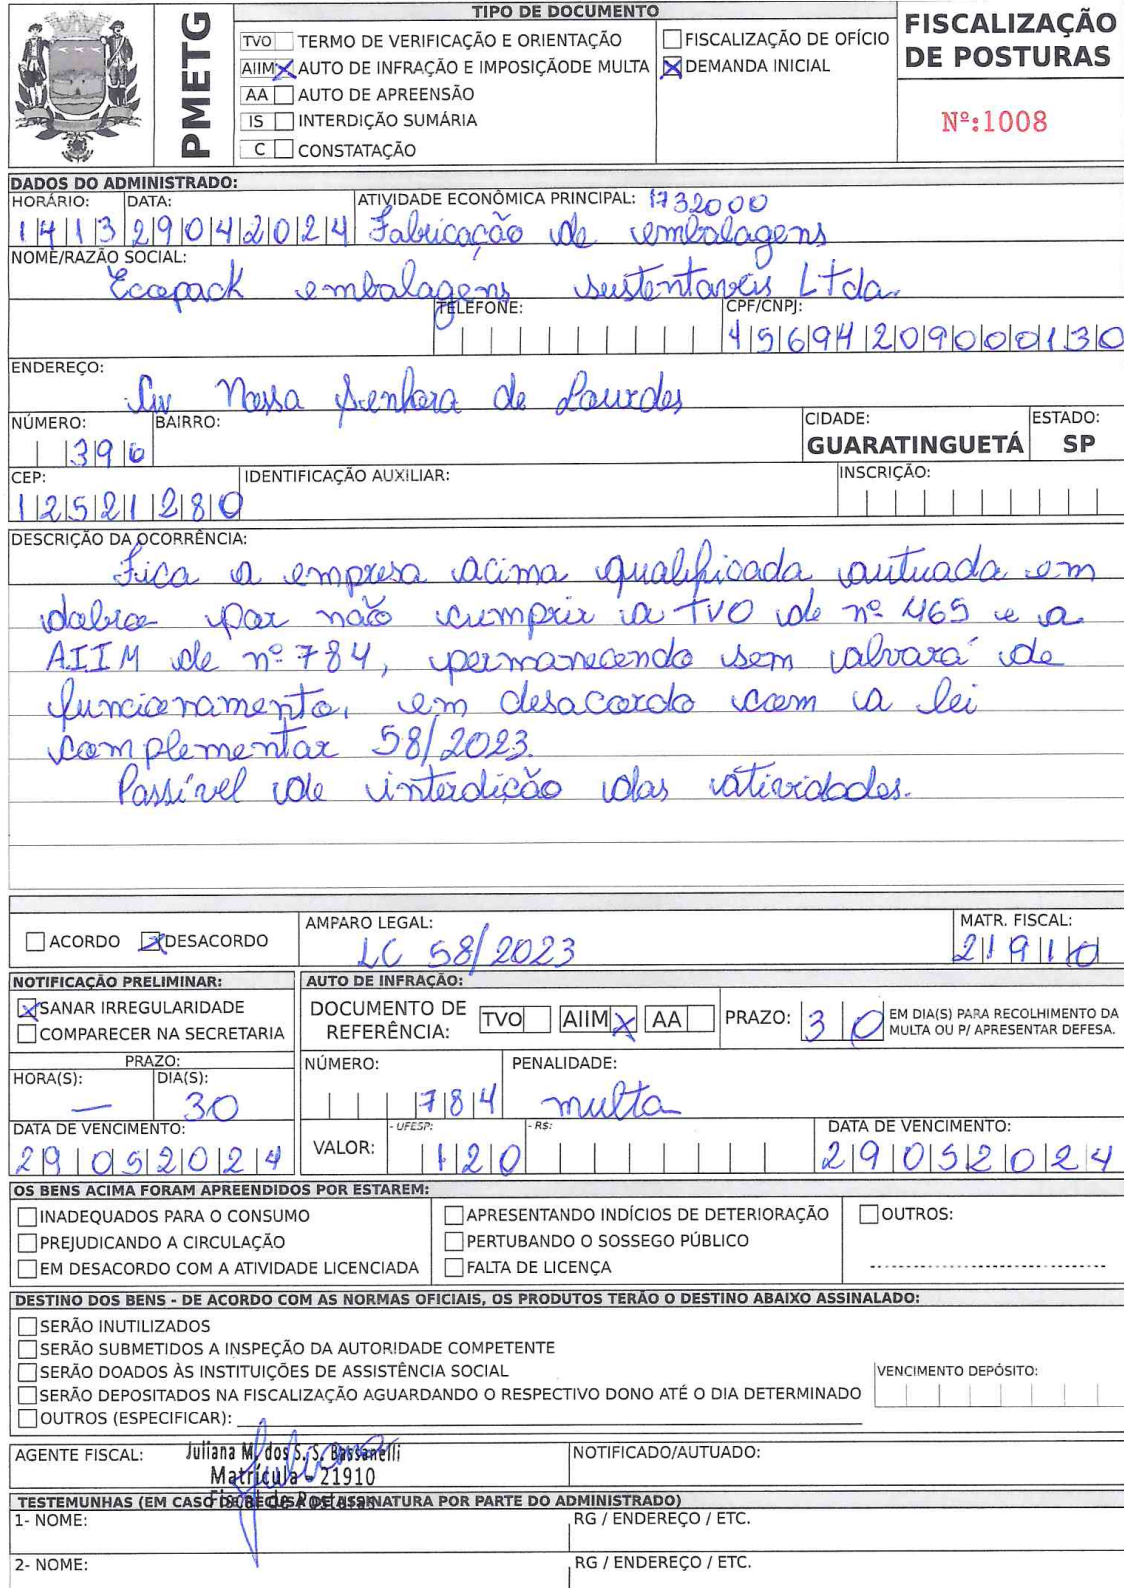 PMETG
TIPO DE DOCUMENTO
TVO TERMO DE VERIFICAÇÃO E ORIENTAÇÃO
AIIM X AUTO DE INFRAÇÃO E IMPOSIÇÃODE MULTA
AA AUTO DE APREENSÃO
IS INTERDIÇÃO SUMÁRIA
C CONSTATAÇÃO
FISCALIZAÇÃO DE OFÍCIO
X DEMANDA INICIAL
FISCALIZAÇÃO
DE POSTURAS
Nº:1008
DADOS DO ADMINISTRADO:
HORÁRIO: DATA: ATIVIDADE ECONÔMICA PRINCIPAL: 1732000
1413 29042024 Fabricação de embalagens
NOME/RAZÃO SOCIAL:
Ecopack embalagens sustentaveis Ltda.
TELEFONE: CPF/CNPJ:
45694209000130
ENDEREÇO:
Av Nossa Senhora de Lourdes
NÚMERO: BAIRRO: CIDADE: ESTADO:
396 GUARATINGUETÁ SP
CEP: IDENTIFICAÇÃO AUXILIAR: INSCRIÇÃO:
12521280
DESCRIÇÃO DA OCORRÊNCIA:
Fica a empresa acima qualificada autuada em
dobro por não cumprir a TVO de nº 465 e a
AIIM de nº 784, permanecendo sem alvará de
funcionamento, em desacordo com a lei
complementar 58/2023.
Passível de interdição das atividades.
ACORDO X DESACORDO
AMPARO LEGAL:
LC 58/2023
MATR. FISCAL:
21910
NOTIFICAÇÃO PRELIMINAR:
X SANAR IRREGULARIDADE
COMPARECER NA SECRETARIA
PRAZO:
HORA(S): DIA(S):
— 30
DATA DE VENCIMENTO:
29052024
AUTO DE INFRAÇÃO:
DOCUMENTO DE
REFERÊNCIA:
TVO AIIM X AA
PRAZO: 30
EM DIA(S) PARA RECOLHIMENTO DA
MULTA OU P/ APRESENTAR DEFESA.
NÚMERO: PENALIDADE:
784 multa
VALOR: - UFESP: - R$: DATA DE VENCIMENTO:
120 29052024
OS BENS ACIMA FORAM APREENDIDOS POR ESTAREM:
INADEQUADOS PARA O CONSUMO
PREJUDICANDO A CIRCULAÇÃO
EM DESACORDO COM A ATIVIDADE LICENCIADA
APRESENTANDO INDÍCIOS DE DETERIORAÇÃO
PERTUBANDO O SOSSEGO PÚBLICO
FALTA DE LICENÇA
OUTROS:
DESTINO DOS BENS - DE ACORDO COM AS NORMAS OFICIAIS, OS PRODUTOS TERÃO O DESTINO ABAIXO ASSINALADO:
SERÃO INUTILIZADOS
SERÃO SUBMETIDOS A INSPEÇÃO DA AUTORIDADE COMPETENTE
SERÃO DOADOS ÀS INSTITUIÇÕES DE ASSISTÊNCIA SOCIAL
SERÃO DEPOSITADOS NA FISCALIZAÇÃO AGUARDANDO O RESPECTIVO DONO ATÉ O DIA DETERMINADO
OUTROS (ESPECIFICAR):
VENCIMENTO DEPÓSITO:
AGENTE FISCAL:
Juliana M. dos S. S. Bassanelli
Matrícula - 21910
Fiscal de Posturas
Juliana
NOTIFICADO/AUTUADO:
TESTEMUNHAS (EM CASO DE RECUSA DE ASSINATURA POR PARTE DO ADMINISTRADO)
1- NOME: RG / ENDEREÇO / ETC.
2- NOME: RG / ENDEREÇO / ETC.